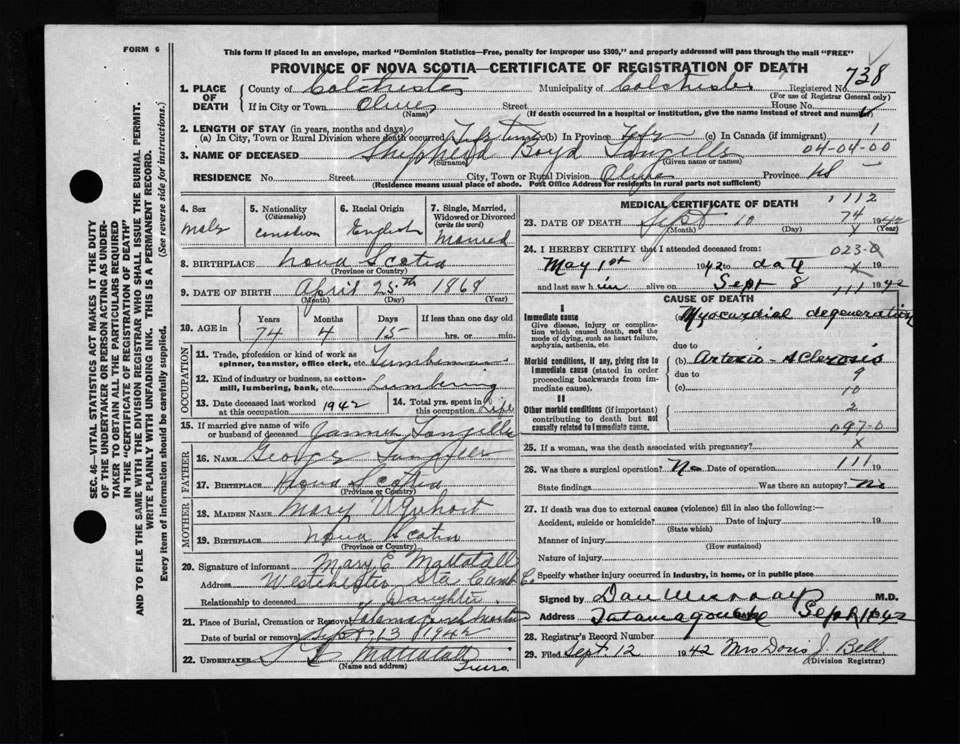 FORM 6
This form if placed in an envelope, marked "Dominion Statistics—Free, penalty for improper use $300," and properly addressed will pass through the mail "FREE"
PROVINCE OF NOVA SCOTIA—CERTIFICATE OF REGISTRATION OF DEATH
738
1. PLACE OF DEATH
County of Colchester Municipality of Colchester Registered No.
(For use of Registrar General only)
If in City or Town Street House No.
(Name) (If death occurred in a hospital or institution, give its name instead of street and number)
2. LENGTH OF STAY (in years, months and days)
(a) In City, Town or Rural Division where death occurred Life time (b) In Province (c) In Canada (if immigrant) 1
3. NAME OF DECEASED Shepherd Boyd Langille 04-04-00
(Surname) (Given name or names)
RESIDENCE No. Street City, Town or Rural Division Province NS
(Residence means usual place of abode. Post Office Address for residents in rural parts not sufficient)
4. Sex
Male
5. Nationality
(Citizenship)
Canadian
6. Racial Origin
English
7. Single, Married, Widowed or Divorced
(write the word)
Married
8. BIRTHPLACE Nova Scotia
(Province or Country)
9. DATE OF BIRTH April 25th 1868
(Month) (Day) (Year)
10. AGE in Years Months Days If less than one day old
74 4 15 hrs. or min.
OCCUPATION
11. Trade, profession or kind of work as spinner, teamster, office clerk, etc. Lumberman
12. Kind of industry or business, as cotton-mill, lumbering, bank, etc. Lumbering
13. Date deceased last worked at this occupation 1942
14. Total yrs. spent in this occupation Life
15. If married give name of wife or husband of deceased Langille
FATHER
16. NAME George Langille
17. BIRTHPLACE Nova Scotia
(Province or Country)
MOTHER
18. MAIDEN NAME Mary Urquhart
19. BIRTHPLACE Nova Scotia
(Province or Country)
20. Signature of informant Mary E. Mattatall
Address Westchester Sta Cumb Co
Relationship to deceased Daughter
21. Place of Burial, Cremation or Removal Tatamagouche
Date of burial or removal Sept 13 1942
22. UNDERTAKER Mattatall
(Name and address) Truro
MEDICAL CERTIFICATE OF DEATH
1112
23. DATE OF DEATH Sept 10 1942
74
(Month) (Day) (Year)
24. I HEREBY CERTIFY that I attended deceased from:
023-0
May 1st 1942 to date 19
and last saw him alive on Sept 8 1942
111
CAUSE OF DEATH
I
Immediate cause
Give disease, injury or complication which caused death, not the mode of dying, such as heart failure, asphyxia, asthenia, etc.
(a) Myocardial degeneration
due to
Morbid conditions, if any, giving rise to immediate cause (stated in order proceeding backwards from immediate cause).
(b) Arterio-sclerosis
due to 9
(c) 10
II
Other morbid conditions (if important) contributing to death but not causally related to immediate cause.
2
097-0
25. If a woman, was the death associated with pregnancy? X
26. Was there a surgical operation? No Date of operation 111 19
State findings Was there an autopsy? No
27. If death was due to external causes (violence) fill in also the following:—
Accident, suicide or homicide? Date of injury 19
(State which)
Manner of injury
(How sustained)
Nature of injury
Specify whether injury occurred in industry, in home, or in public place
Signed by Dan Murray M.D.
Address Tatamagouche Sept
28. Registrar's Record Number
29. Filed Sept 12 1942 Mrs Doris J. Bell
(Division Registrar)
SEC. 46—VITAL STATISTICS ACT MAKES IT THE DUTY
OF THE UNDERTAKER OR PERSON ACTING AS UNDERTAKER TO OBTAIN ALL THE PARTICULARS REQUIRED
IN THE "CERTIFICATE OF REGISTRATION OF DEATH"
AND TO FILE THE SAME WITH THE DIVISION REGISTRAR WHO SHALL ISSUE THE BURIAL PERMIT.
WRITE PLAINLY WITH UNFADING INK. THIS IS A PERMANENT RECORD.
Every item of information should be carefully supplied. (See reverse side for instructions.)